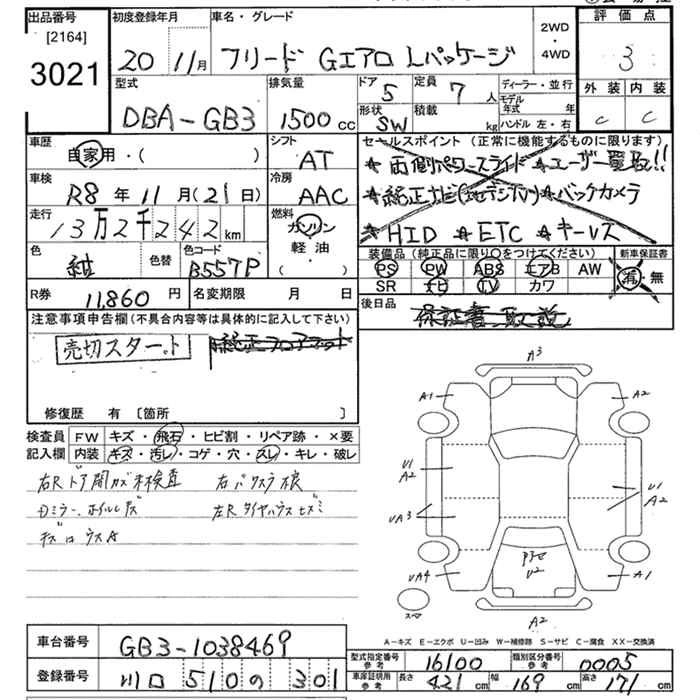 出品番号 初度登録年月 車名・グレード 評価点
[2164]
3021 20 11月 フリード Gエアロ Lパッケージ 2WD・4WD 3
外装 内装
C C
型式 排気量 ドア 定員 ディーラー・並行
DBA-GB3 1500cc 5 7人 モデル年式 年
形状 積載 ハンドル 左・右
SW kg
車歴 シフト セールスポイント(正常に機能するものに限ります)
自家用・( ) AT ★両側パワースライド ★ユーザー買取!!
車検 冷房 ★純正ナビ(地デジTV)★バックカメラ
R8年11月(21日) AAC ★HID ★ETC ★キーレス
走行 燃料 装備品(純正品に限り○をつけてください) 新車保証書
13万2千242km ガソリン PS PW ABS エアB AW 有・無
軽油 SR ナビ TV カワ
色 色替 色コード ・( )
紺 B557P
R券 11,860円 名変期限 月 日 後日品
保証書、取説
注意事項申告欄(不具合内容等は具体的に記入して下さい)
売切スタート 純正フロアマット
修復歴 有 [箇所 ]
検査員 FW キズ・飛石・ヒビ割・リペア跡・×要
記入欄 内装 キズ・汚レ・コゲ・穴・スレ・キレ・破レ
A3
A1 A2
U1 A2
U1 A2
UA3
UA4 A1
U2
A2
スペア
A-キズ E-エクボ U-凹み W-補修跡 S-サビ C-腐食 XX-交換済
車台番号 GB3-1038469
型式指定番号 参考 16100 類別区分番号 参考 0005
登録番号 川口 510 の 301
車庫証明用 参考 長さ 421cm 幅 169cm 高さ 171cm